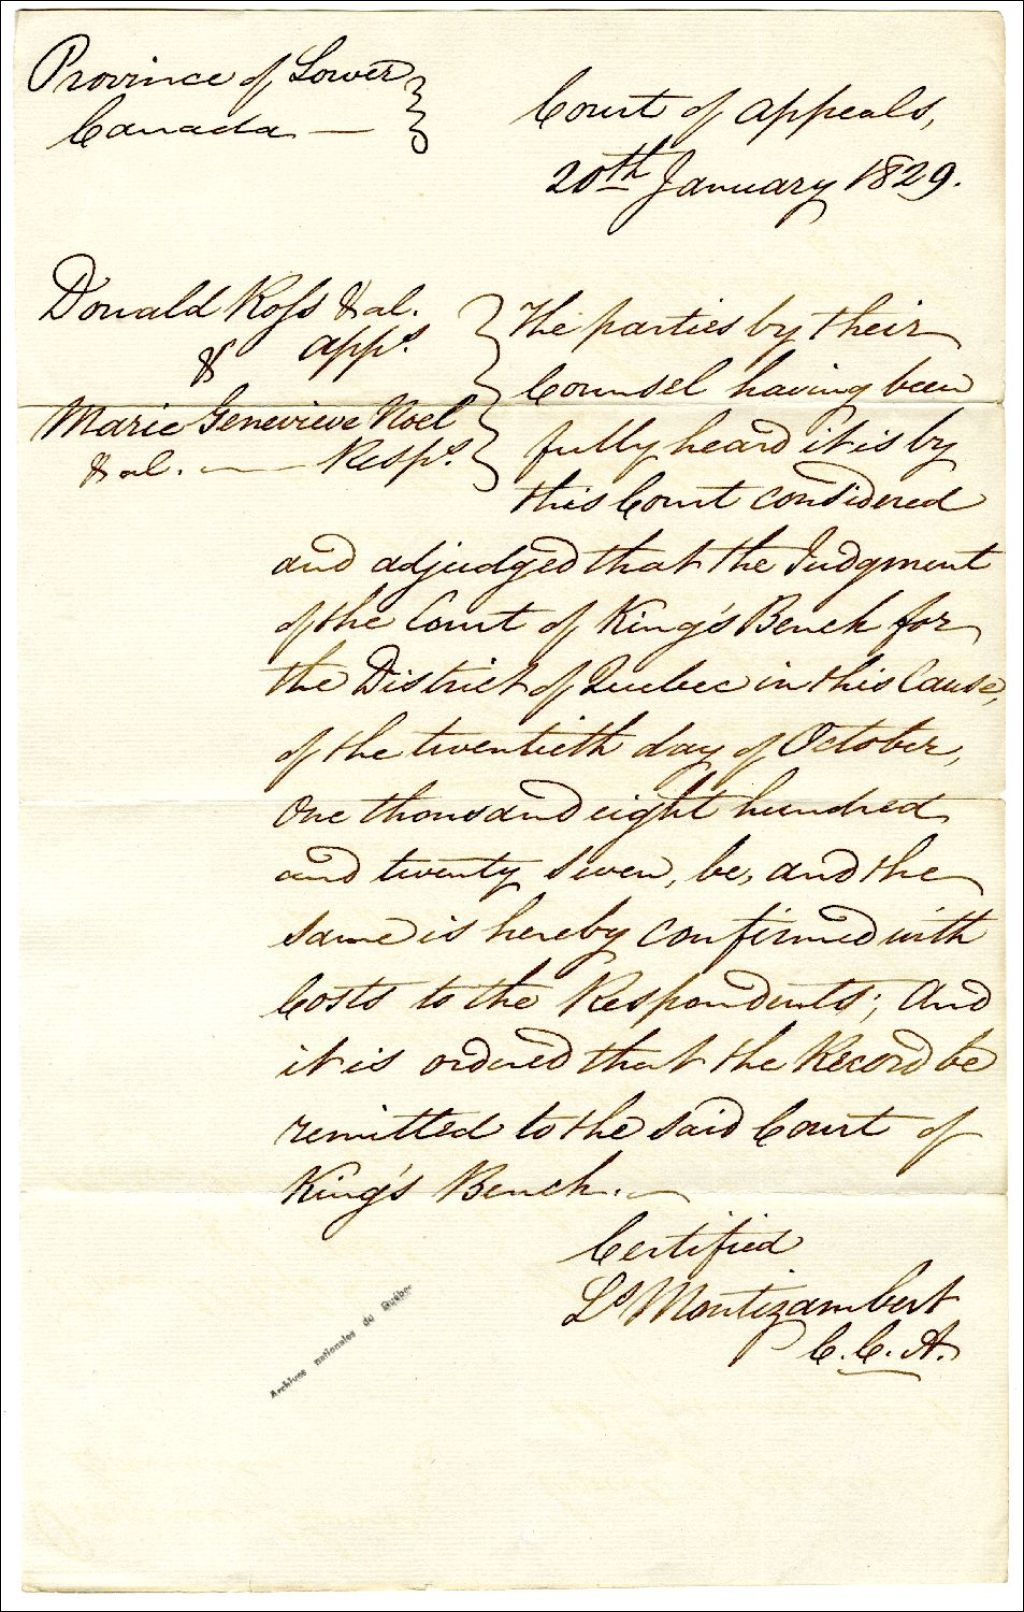 Province of Lower
Canada —
Court of Appeals,
20th January 1829.
Donald Ross & al.
Appts.
&
Marie Genevieve Noel
& al. — Respts.
The parties by their
Counsel having been
fully heard it is by
this Court considered
and adjudged that the Judgment
of the Court of King's Bench for
the District of Quebec in this Cause,
of the twentieth day of October,
One thousand eight hundred
and twenty seven, be, and the
same is hereby confirmed with
Costs to the Respondents; And
it is ordered that the Record be
remitted to the said Court of
King's Bench. —
Certified
Ls Montizambert
C. C. A.
Archives nationales du Québec